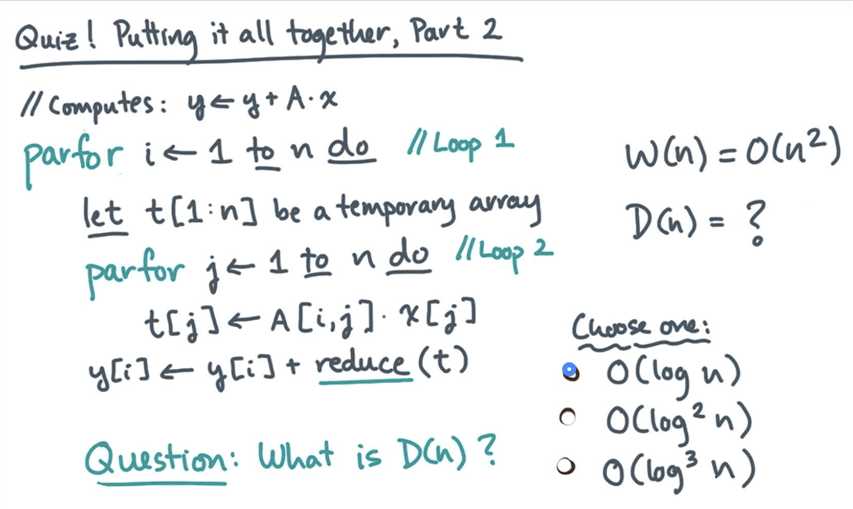 Quiz! Putting it all together, Part 2
// Computes: y ← y + A·x
parfor i ← 1 to n do // Loop 1
let t[1:n] be a temporary array
parfor j ← 1 to n do // Loop 2
t[j] ← A[i,j] · x[j]
y[i] ← y[i] + reduce(t)
Question: What is D(n)?
W(n) = O(n²)
D(n) = ?
Choose one:
O(log n)
O(log² n)
O(log³ n)